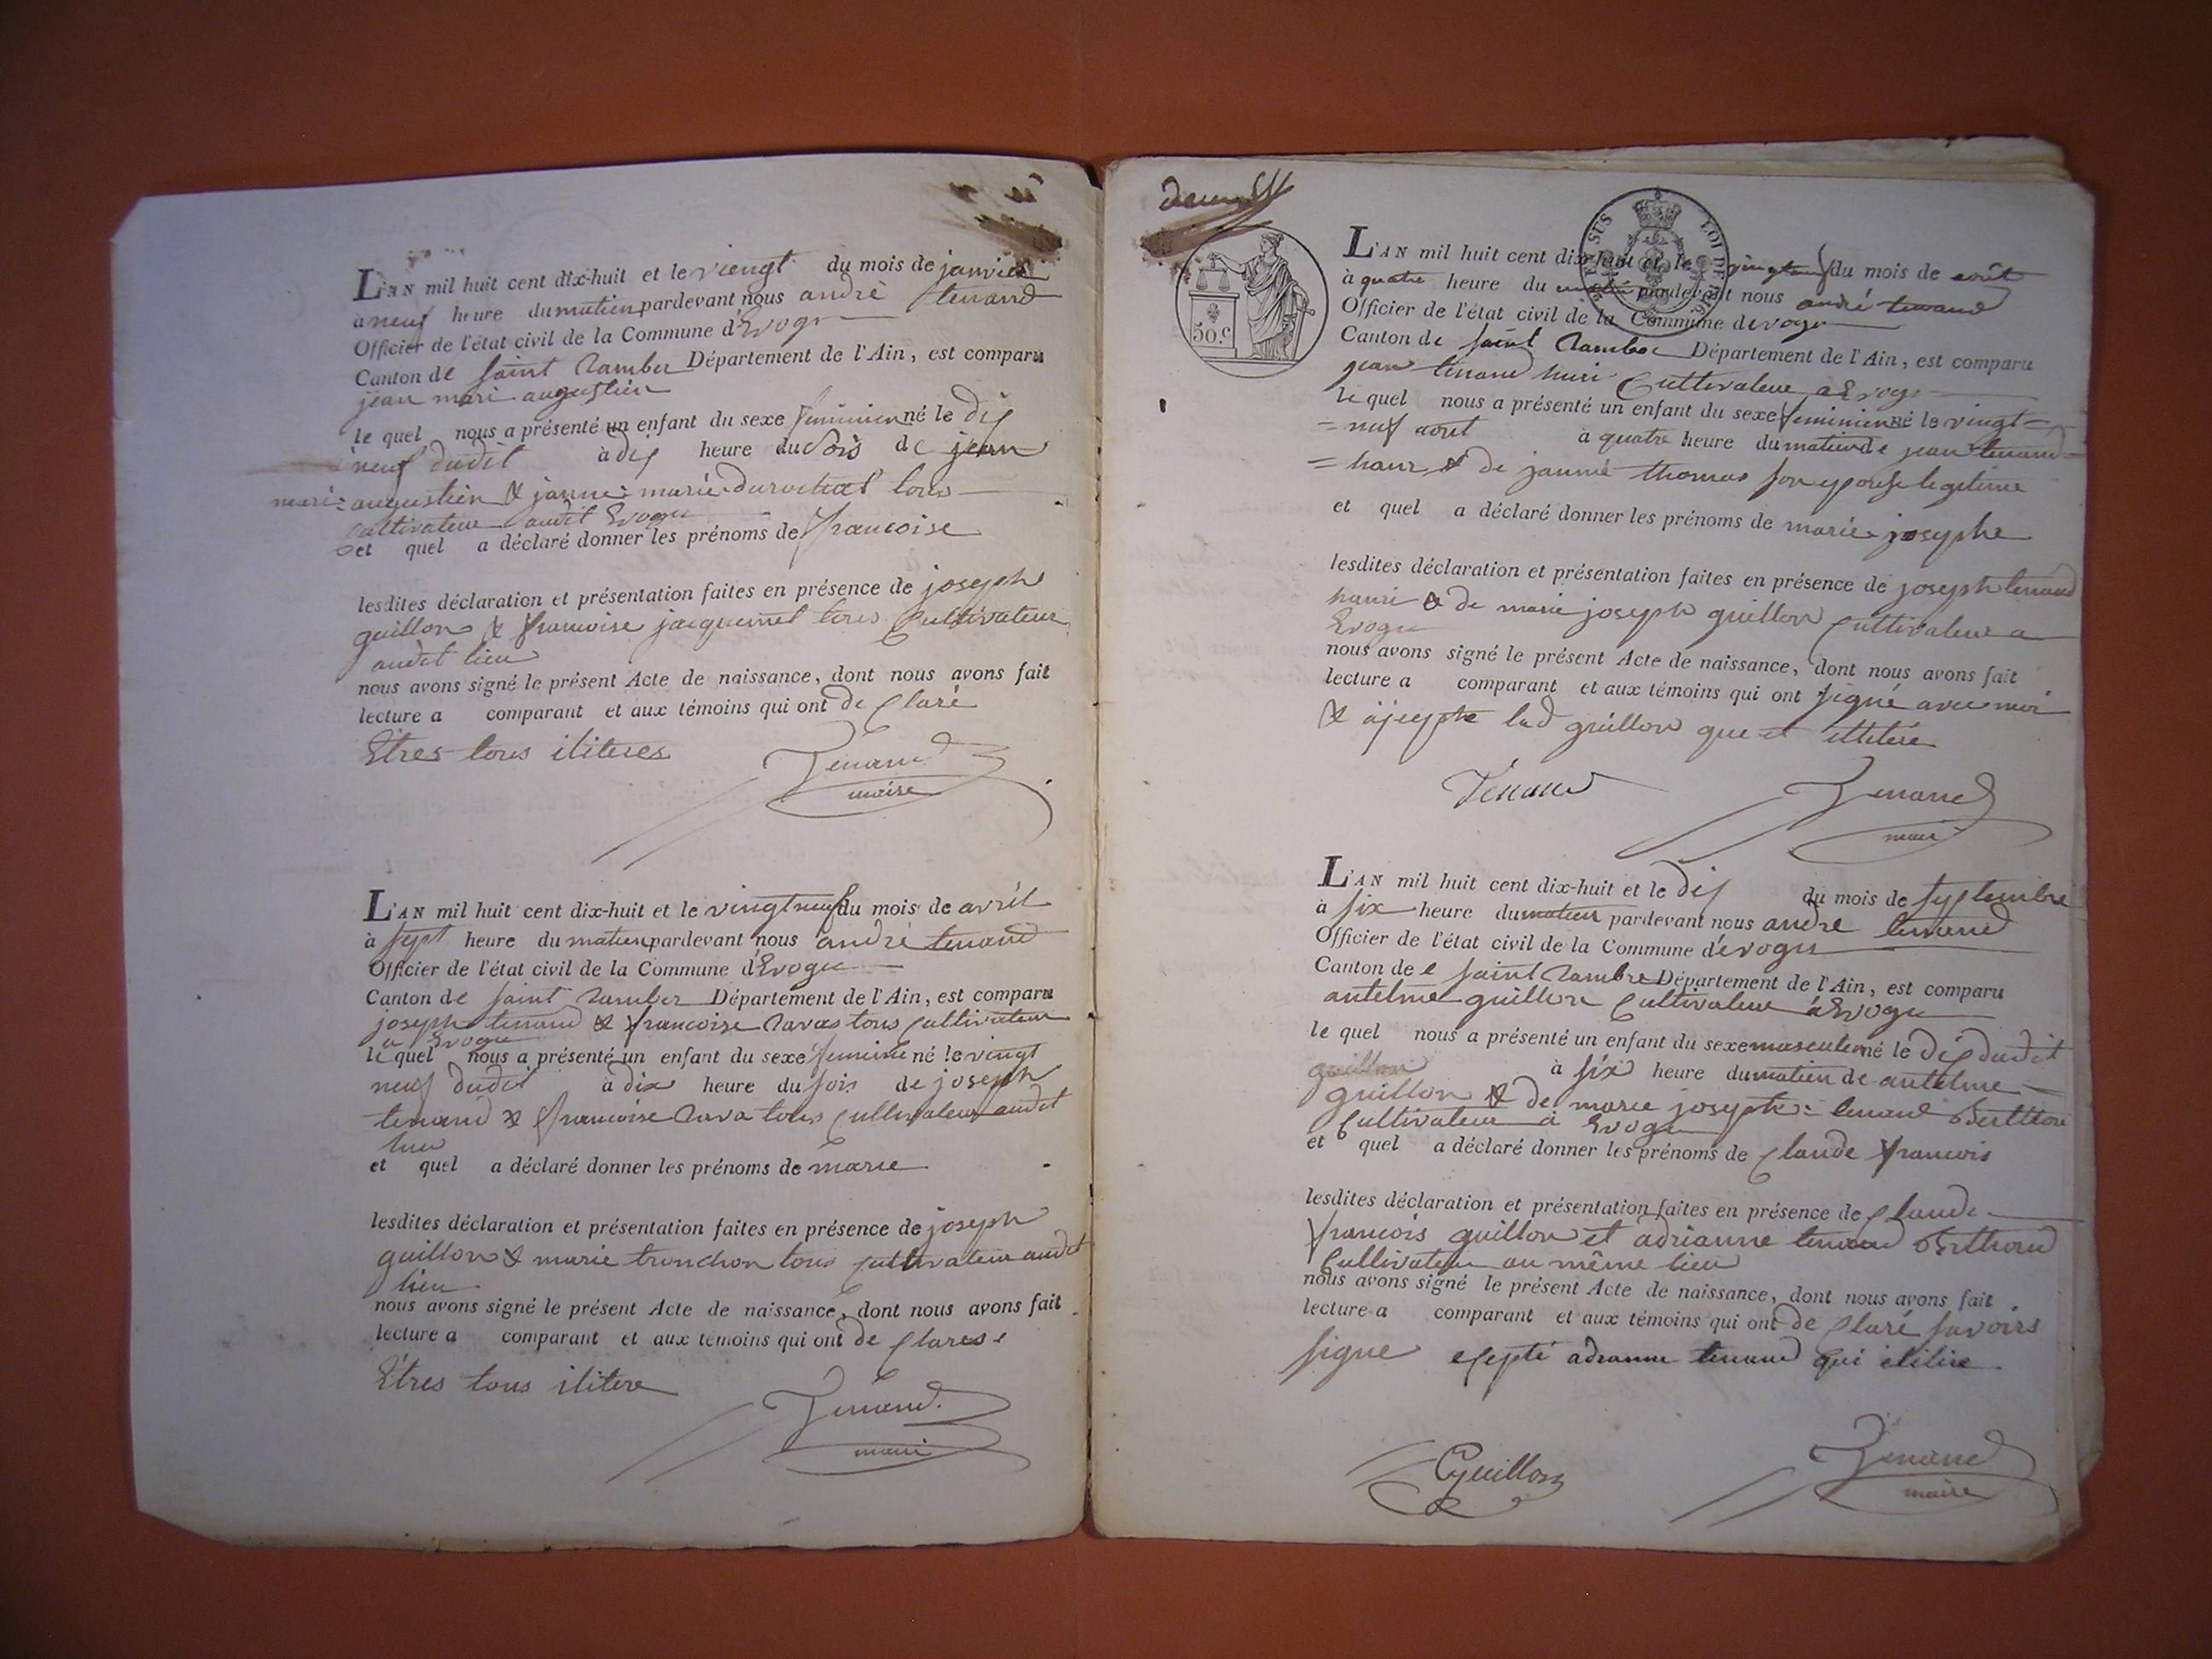 L'AN mil huit cent dix-huit et le viengt du mois de janvier
a neuf heure du matien pardevant nous andré tenand
Officier de l'état civil de la Commune d'Evoge
Canton de saint Ramber Département de l'Ain, est comparu
jean mari augustien
le quel nous a présenté un enfant du sexe feminien né le dix
neuf dudit à dix heure du Soir de jean
mari= augustien & janne marie durochat tous
cultivateur audit Evoge
et quel a déclaré donner les prénoms de francoise
lesdites déclaration et présentation faites en présence de joseph
guillon & francoise jacquemet tous Cultivateur
audit lieu
nous avons signé le présent Acte de naissance, dont nous avons fait
lecture a comparant et aux témoins qui ont de Claré
Etres tous iliteres
Tenand
maire
L'AN mil huit cent dix-huit et le vingt neuf du mois de avril
à sept heure du matien pardevant nous andré tenand
Officier de l'état civil de la Commune d'Evoge
Canton de saint Ramber Département de l'Ain, est comparu
joseph tenand & francoise Ravas tous Cultivateur
a Evoge
le quel nous a présenté un enfant du sexe feminine né le vingt
neuf dudit à dix heure du soir de joseph
tenand & francoise Rava tous Cultivateur audit
lieu
et quel a déclaré donner les prénoms de marie
lesdites déclaration et présentation faites en présence de joseph
guillon & marie tronchon tous cultivateur audit
lieu
nous avons signé le présent Acte de naissance, dont nous avons fait
lecture a comparant et aux temoins qui ont de Clares
Etres tous ilitere
Tenand
maire
50.c
L'AN mil huit cent dix-huit et le vingtneuf du mois de août
à quatre heure du matin pardevant nous andré tenand
Officier de l'état civil de la Commune d'evoge
Canton de saint Ramber Département de l'Ain, est comparu
jean tenand Cultivateur a Evoge
le quel nous a présenté un enfant du sexe feminien né le vingt=
=neuf aout à quatre heure du matien de jean tenand=
& de janne thomas son epouse legitime
et quel a déclaré donner les prénoms de marie josephe
lesdites déclaration et présentation faites en présence de joseph tenand
& de marie joseph guillon Cultivateur a
Evoge
nous avons signé le présent Acte de naissance, dont nous avons fait
lecture a comparant et aux témoins qui ont signé avec moi
& lad guillon que et ilitére
Tenand
Tenand
maire
L'AN mil huit cent dix-huit et le dix du mois de septembre
à six heure du matien pardevant nous andre tenand
Officier de l'état civil de la Commune d'évoge
Canton de saint Rambre Département de l'Ain, est comparu
antelme guillon Cultivateur à Evoge
le quel nous a présenté un enfant du sexe masculin né le dix dudit
guillon à six heure du matien de antelme
guillon & de marie joseph= tenand
Cultivateur a Evoge
et quel a déclaré donner les prénoms de Claude francois
lesdites déclaration et présentation faites en présence de Claude
francois guillon et adrianne tenand
Cultivateur au même lieu
nous avons signé le présent Acte de naissance, dont nous avons fait
lecture a comparant et aux témoins qui ont de Claré savoirs
signe exepté adrianne tenand qui
Guillon
Tenand
maire